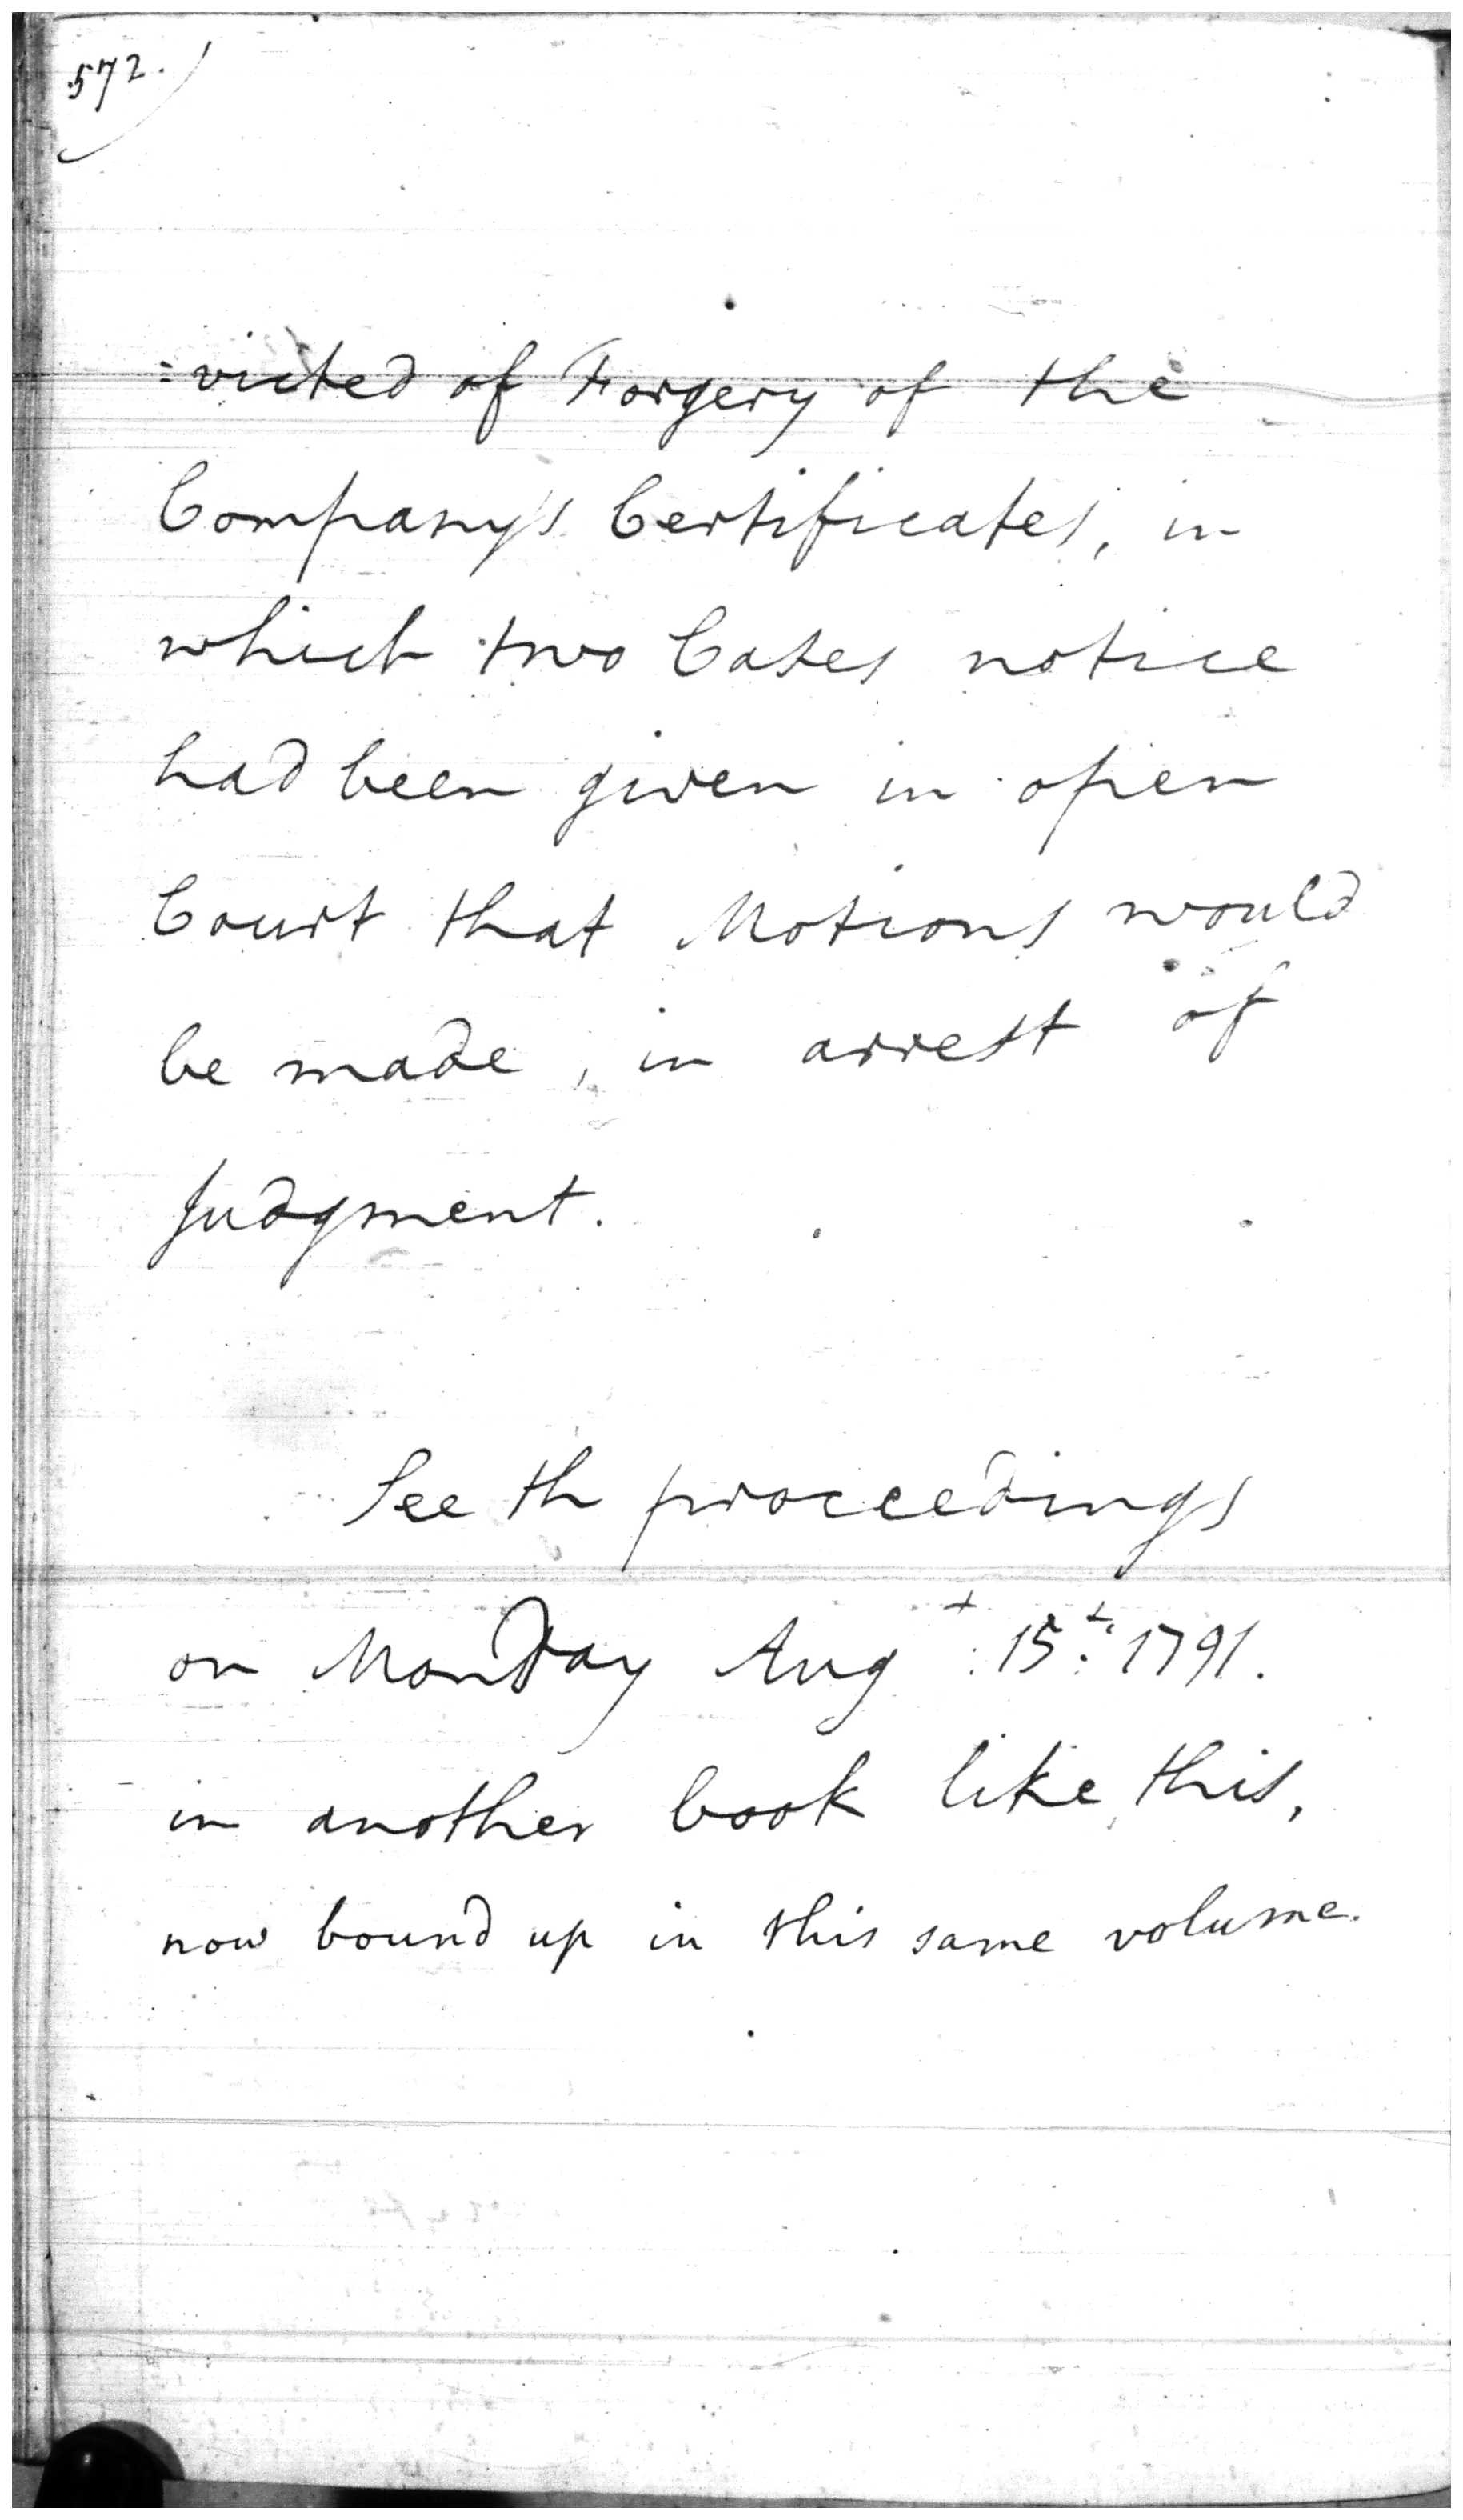 572.
=victed of Forgery of the
Company's Certificates, in
which two Cases notice
had been given in open
Court that Motions would
be made, in arrest of
Judgment.
See th proceedings
on Monday Augt. 15t. 1791.
in another book like this,
now bound up in this same volume.